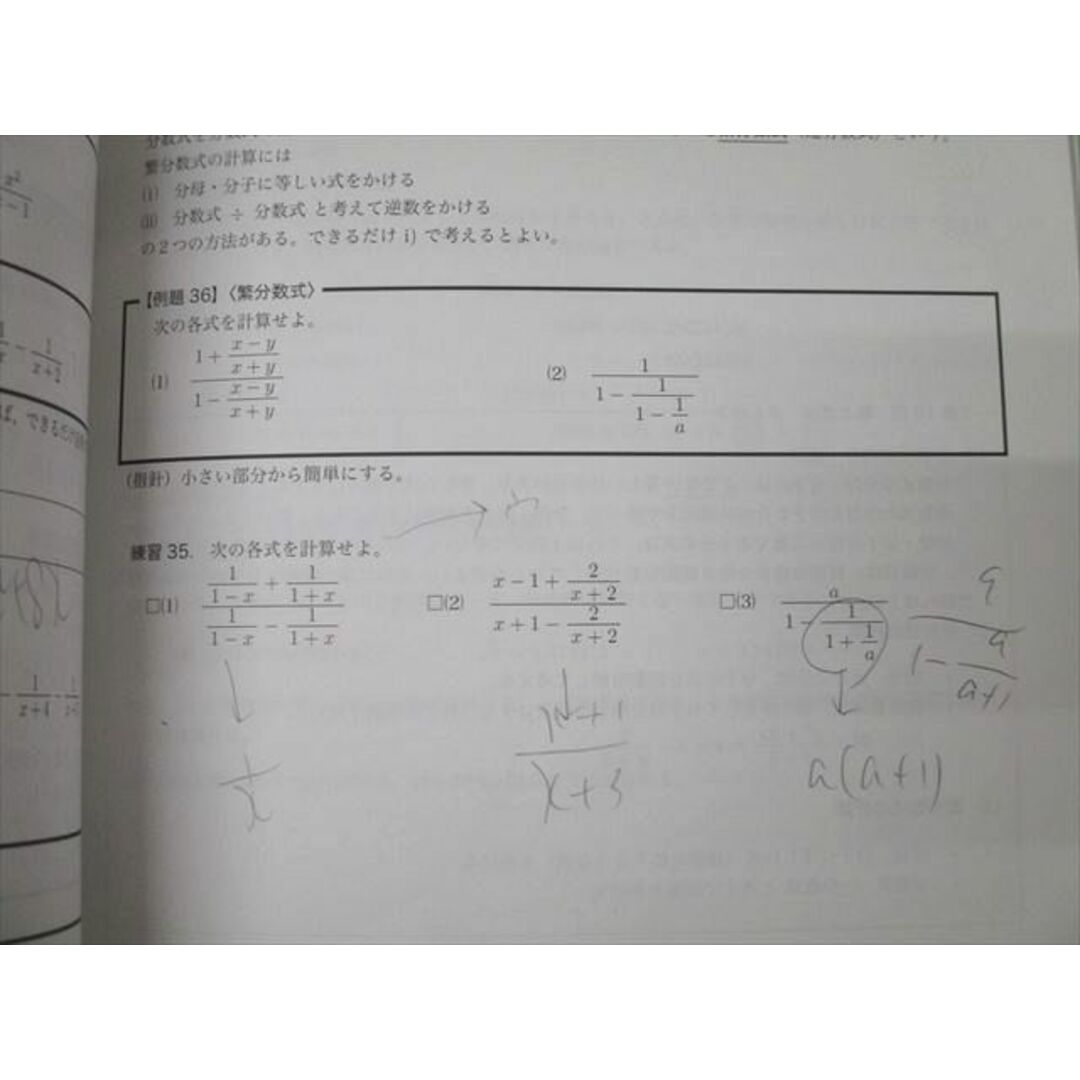 繁分数式の計算には
(i) 分母・分子に等しい式をかける
(ii) 分数式 ÷ 分数式 と考えて逆数をかける
の2つの方法がある。できるだけ i) で考えるとよい。
【例題 36】〈繁分数式〉
次の各式を計算せよ。
(1) \frac{1+\frac{x-y}{x+y}}{1-\frac{x-y}{x+y}} (2) \frac{1}{1-\frac{1}{1-\frac{1}{a}}}
(指針) 小さい部分から簡単にする。
練習 35. 次の各式を計算せよ。
□(1) \frac{\frac{1}{1-x}+\frac{1}{1+x}}{\frac{1}{1-x}-\frac{1}{1+x}} □(2) \frac{x-1+\frac{2}{x+2}}{x+1-\frac{2}{x+2}} □(3) \frac{a}{1-\frac{1}{1+\frac{1}{a}}} \frac{a}{1-\frac{a}{a+1}}
\frac{1}{x} \frac{x+1}{x+3} a(a+1)